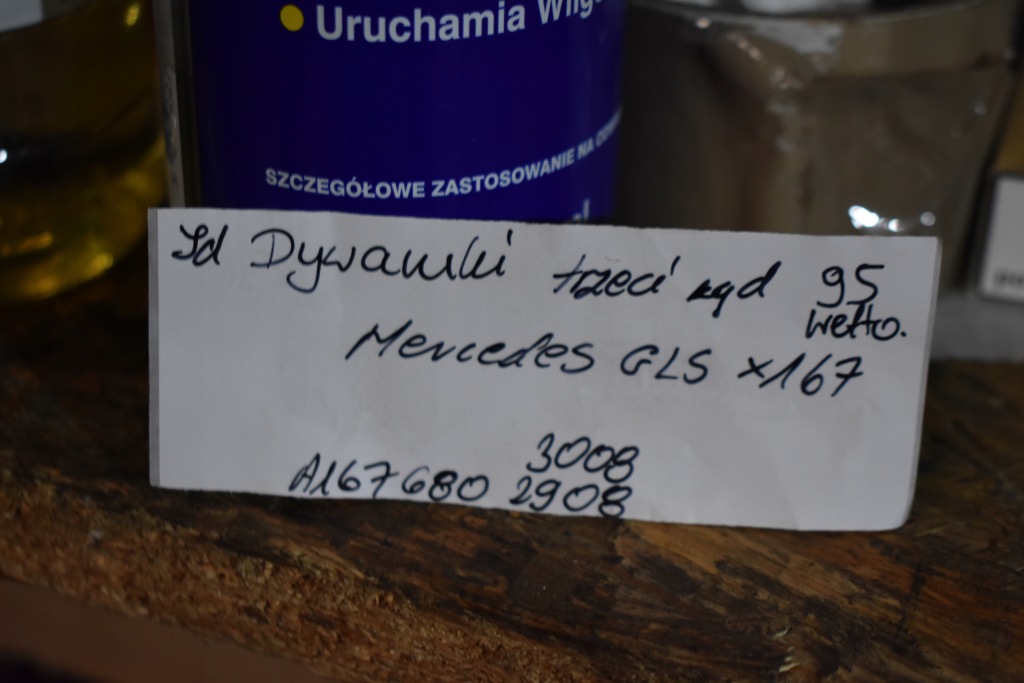 Uruchamia Wilg
SZCZEGÓŁOWE ZASTOSOWANIE NA O
Dywaniki trzeci rząd 95
netto.
Mercedes GLS x167
3008
A167680 2908